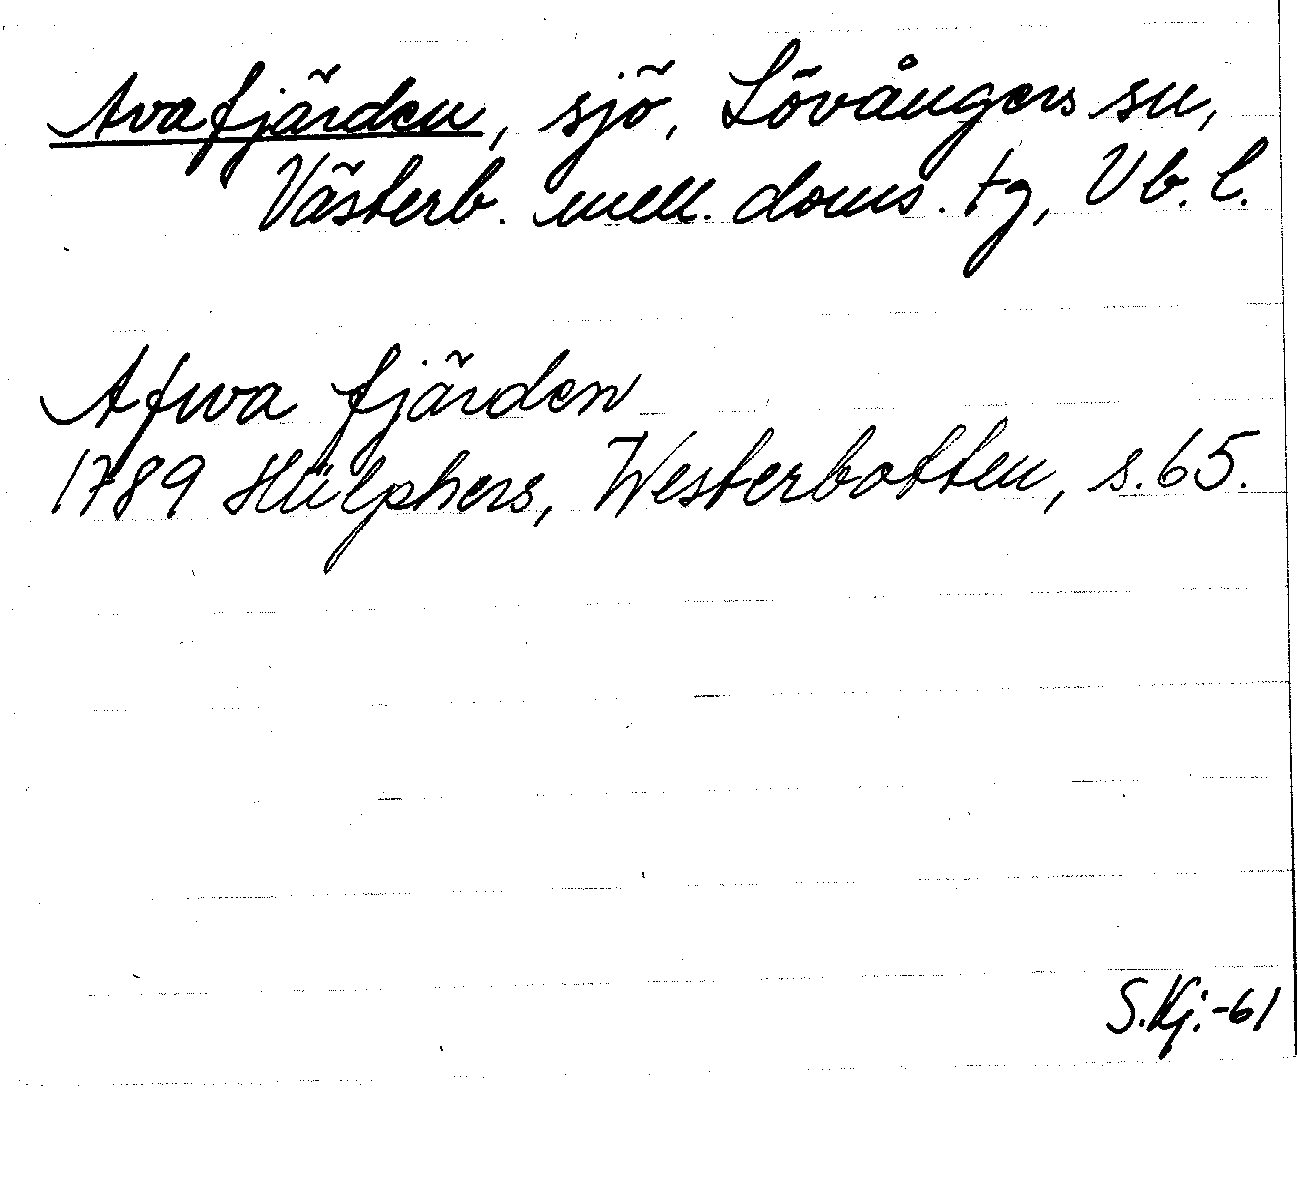 Avafjärden, sjö, Lövångers sn,
Västerb. mell. doms. tg, Vb. l.
Afwa fjärden
1789 Hülphers, Westerbotten, s. 65.
S.Kj.-61